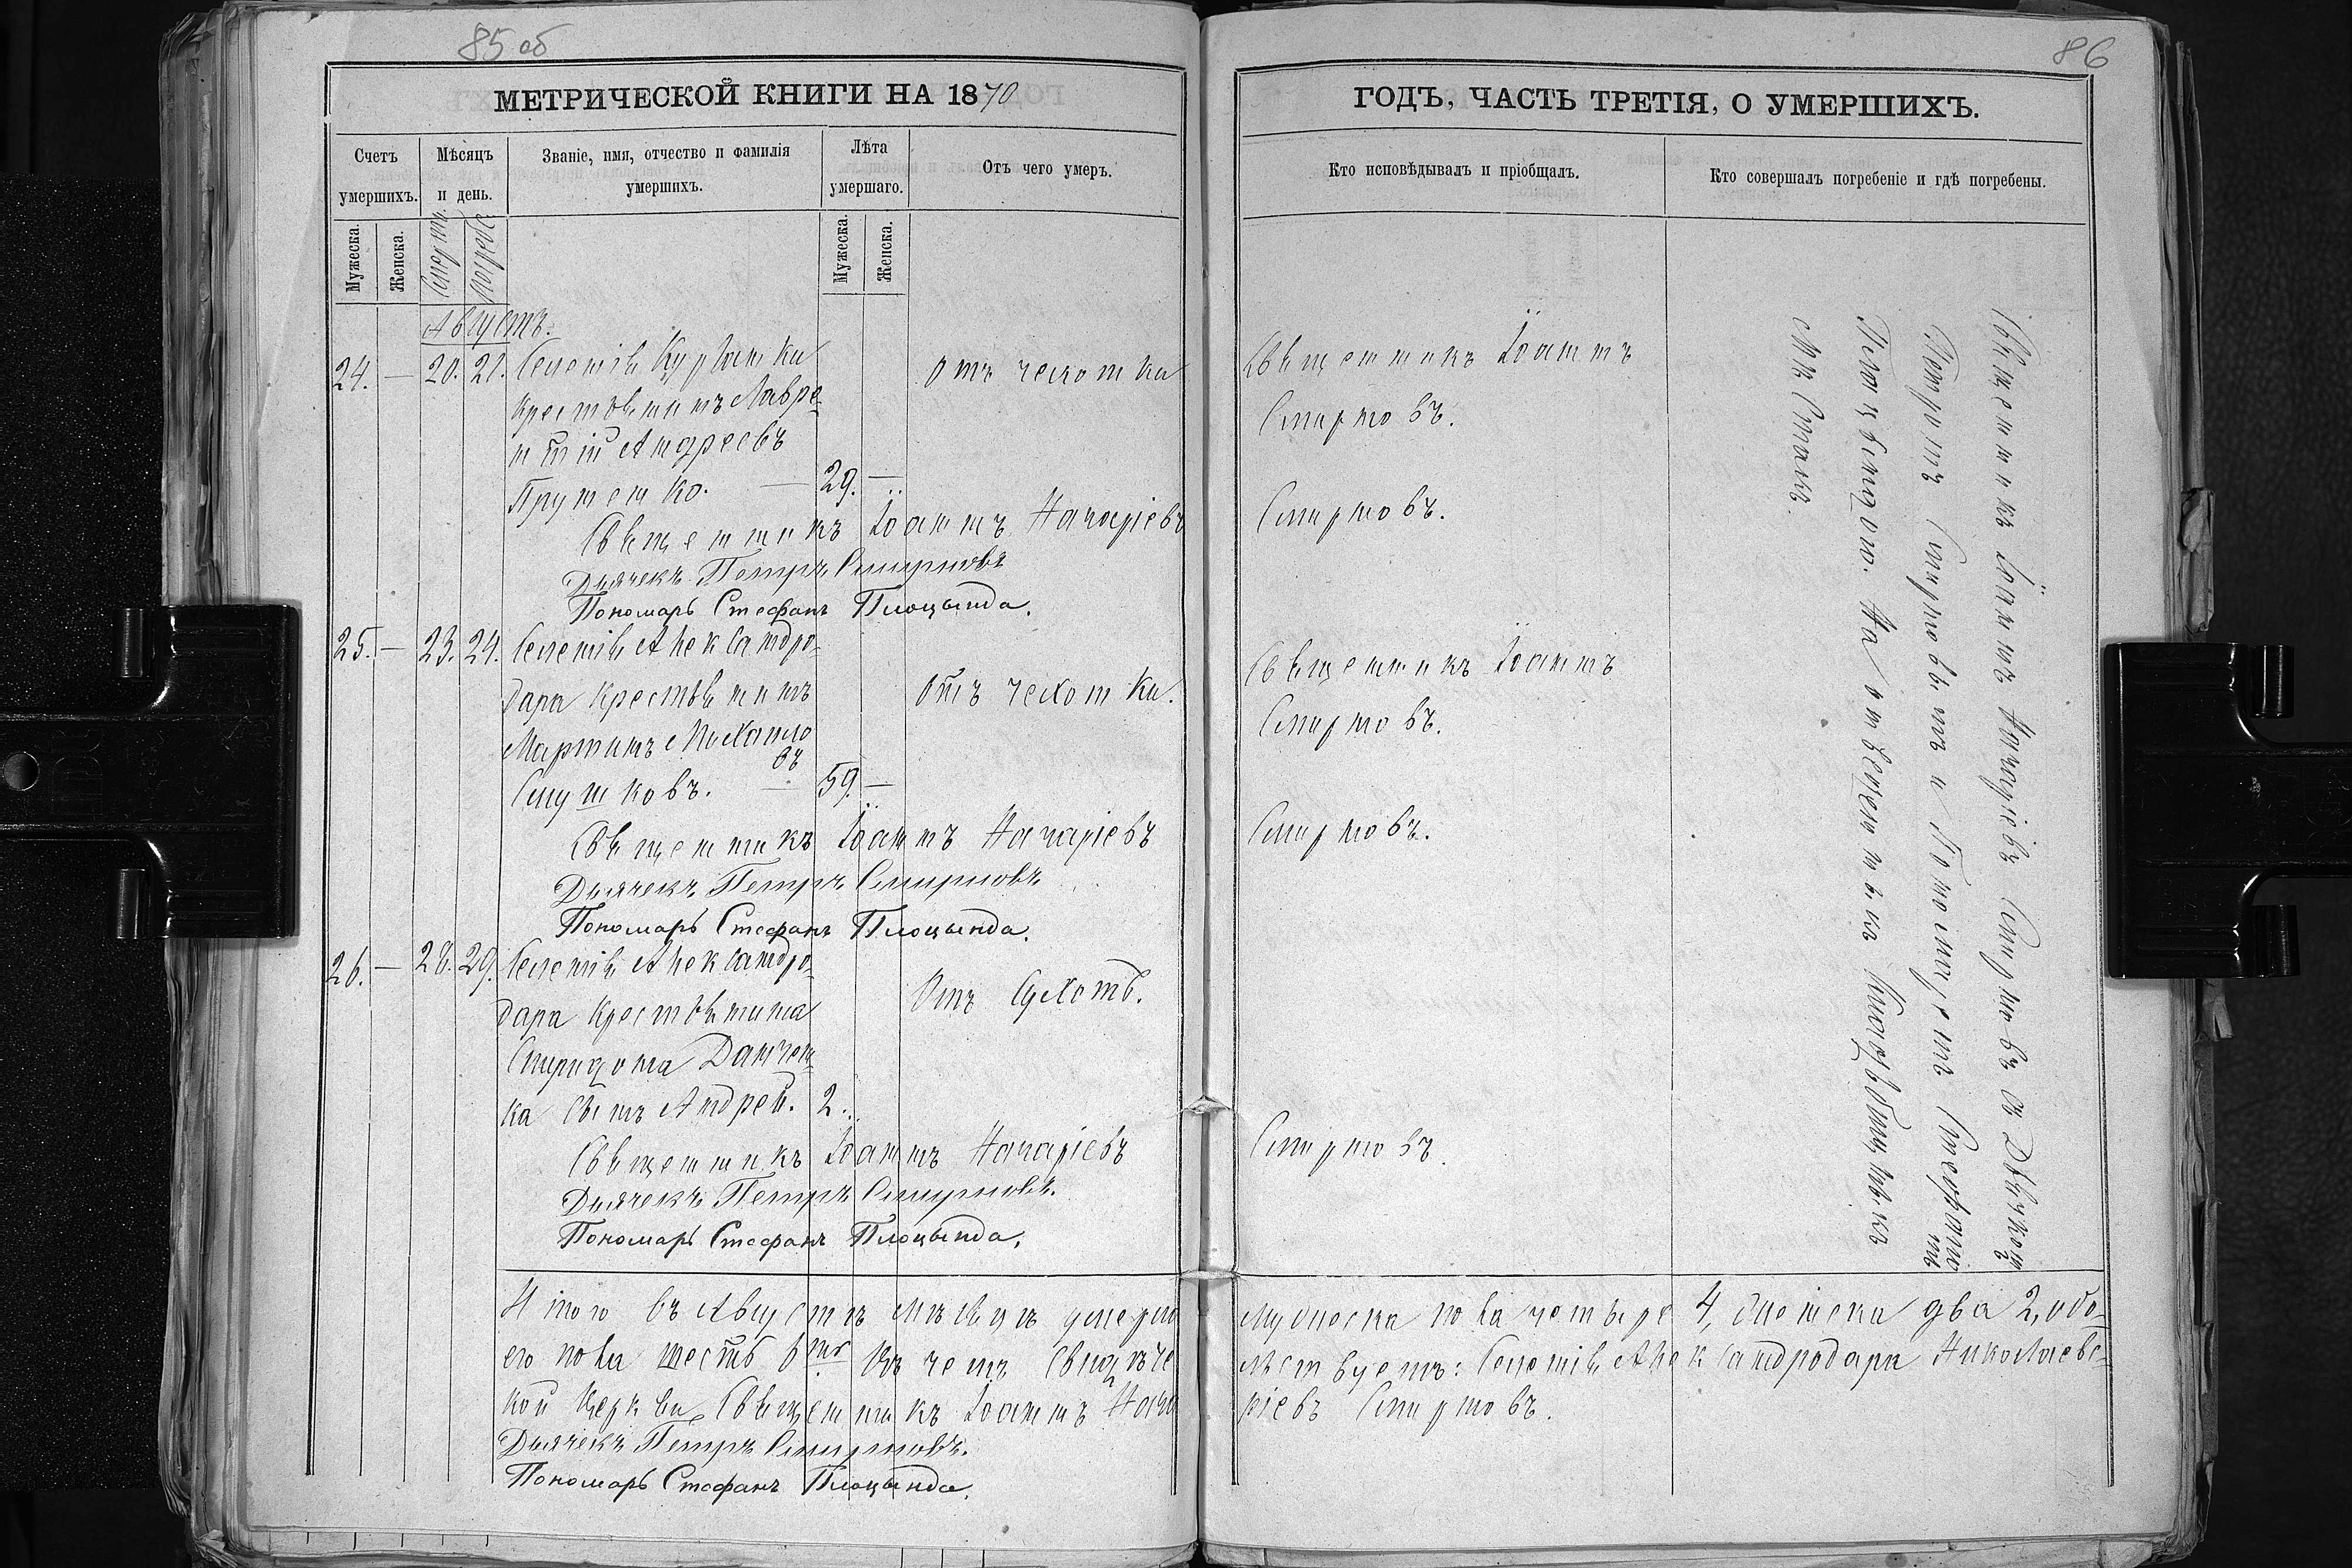 85 об
МЕТРИЧЕСКОЙ КНИГИ НА 1870
Счетъ умершихъ.
Мѣсяцъ и день.
Званіе, имя, отчество и фамилія умершихъ.
Лѣта умершаго.
Отъ чего умеръ.
Мужеска.
Женска.
Смерти.
Погреб.
Мужеска.
Женска.
Августъ.
24. — 20. 21. Селенія Курланки отъ чехотки
крестьянинъ Лавре-
нтій Андреевъ
Пруненко. — 29. —
Священникъ Іоаннъ Назаріевъ
Дьячекъ Петръ Смирновъ
Пономарь Стефанъ Плоцында.
25. — 23. 24. Селенія Александро-
дара крестьянинъ отъ чехотки.
Мартинъ Михайло
въ
Слушковъ. — 59. —
Священникъ Іоаннъ Назаріевъ
Дьячекъ Петръ Смирновъ
Пономарь Стефанъ Плоцында.
26. — 28. 29. Селенія Александро-
дара крестьянина Отъ сухотъ.
Спиридона Данчен-
ка сынъ Андрей. 2.
Священникъ Іоаннъ Назаріевъ
Дьячекъ Петръ Смирновъ.
Пономарь Стефанъ Плоцында.
Итого въ Августѣ мѣсяцѣ умерло
его пола шесть 6ть Въ чемъ свидѣте
кой церкви Священникъ Іоаннъ Наза
Дьячекъ Петръ Смирновъ.
Пономарь Стефанъ Плоцында.
86
ГОДЪ, ЧАСТЬ ТРЕТІЯ, О УМЕРШИХЪ.
Кто исповѣдывалъ и пріобщалъ.
Кто совершалъ погребеніе и гдѣ погребены.
Священникъ Іоаннъ
Смирновъ.
Смирновъ.
Священникъ Іоаннъ
Смирновъ.
Смирновъ.
Смирновъ.
Священникъ Іоаннъ Назаріевъ Смирновъ съ Дьячкомъ
Петромъ Смирновымъ и Пономаремъ Стефаномъ
Плоцындою. На отведенныхъ кладбищныхъ
мѣстахъ.
Мужеска пола четыре 4, женска два 2, обо-
льствуетъ: Селенія Александродара Николаевс-
ріевъ Смирновъ.